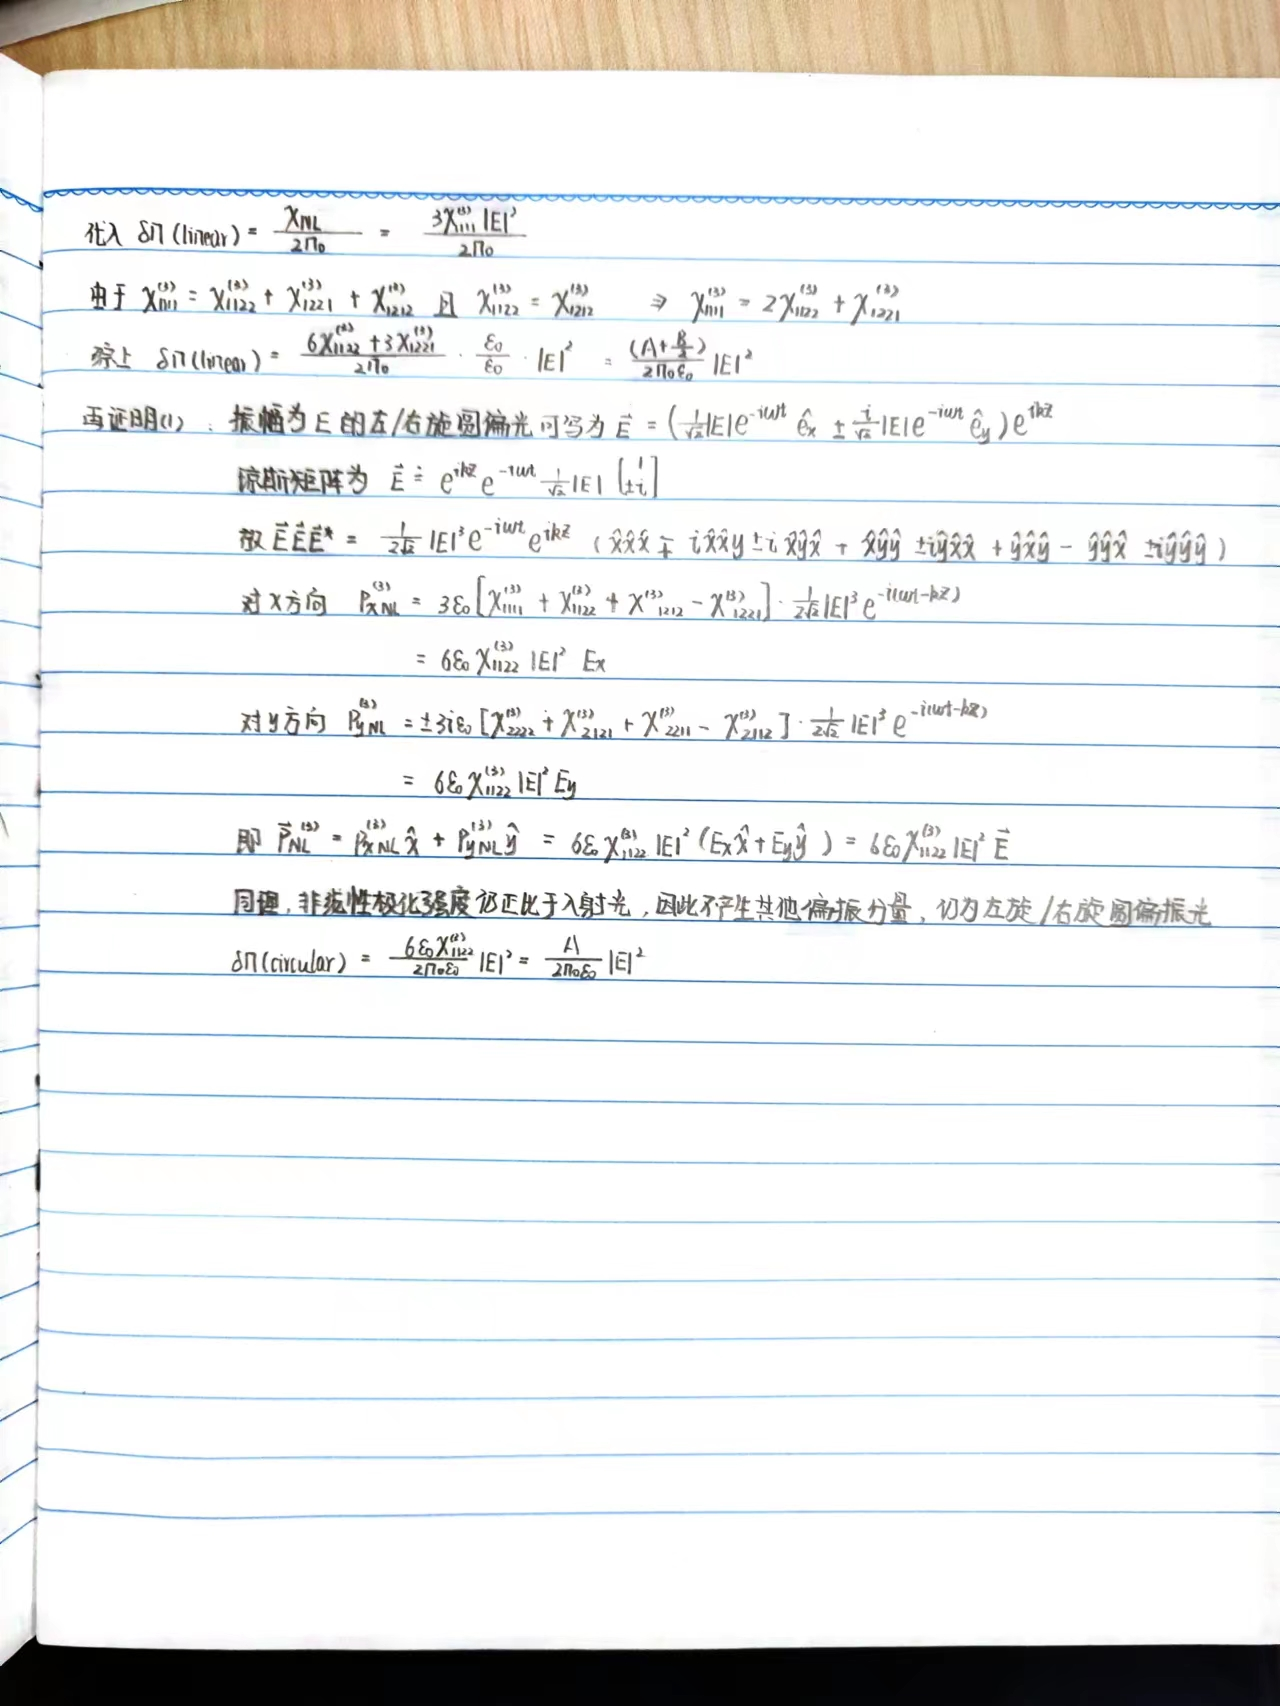 代入 δn(linear) = χNL/2n₀ = 3χ₁₁₁₁⁽³⁾|E|²/2n₀
由于 χ₁₁₁₁⁽³⁾ = χ₁₁₂₂⁽³⁾ + χ₁₂₂₁⁽³⁾ + χ₁₂₁₂⁽³⁾ 且 χ₁₁₂₂⁽³⁾ = χ₁₂₁₂⁽³⁾ ⇒ χ₁₁₁₁⁽³⁾ = 2χ₁₁₂₂⁽³⁾ + χ₁₂₂₁⁽³⁾
综上 δn(linear) = (6χ₁₁₂₂⁽³⁾ + 3χ₁₂₂₁⁽³⁾)/2n₀ · ε₀/ε₀ · |E|² = (A + B/2)/2n₀ε₀ |E|²
再证明(1): 振幅为 E 的左/右旋圆偏光可写为 E⃗ = (1/√2 |E|e^{-iωt} ê_x ± i/√2 |E|e^{-iωt} ê_y) e^{ikz}
琼斯矩阵为 E⃗ ≐ e^{ikz} e^{-iωt} 1/√2 |E| [1 ±i]
故 E⃗E⃗E⃗* = 1/2√2 |E|³ e^{-iωt} e^{ikz} (x̂x̂x̂ ∓ ix̂x̂y ± ix̂ŷx̂ + x̂ŷŷ ± iŷx̂x̂ + ŷx̂ŷ − ŷŷx̂ ± iŷŷŷ)
对x方向 P_{xNL}⁽³⁾ = 3ε₀[χ₁₁₁₁⁽³⁾ + χ₁₁₂₂⁽³⁾ + χ⁽³⁾₁₂₁₂ − χ⁽³⁾₁₂₂₁] · 1/2√2 |E|³ e^{-i(ωt-kz)}
= 6ε₀χ₁₁₂₂⁽³⁾ |E|² Ex
对y方向 P_{yNL}⁽³⁾ = ±3iε₀[χ₂₂₂₂⁽³⁾ + χ₂₁₂₁⁽³⁾ + χ₂₂₁₁⁽³⁾ − χ₂₁₁₂⁽³⁾] · 1/2√2 |E|³ e^{-i(ωt-kz)}
= 6ε₀χ₁₁₂₂⁽³⁾ |E|² Ey
即 P⃗_{NL}⁽³⁾ = P_{xNL}⁽³⁾ x̂ + P_{yNL}⁽³⁾ ŷ = 6ε₀χ₁₁₂₂⁽³⁾ |E|² (Exx̂ + Eyŷ) = 6ε₀χ₁₁₂₂⁽³⁾ |E|² E⃗
同理, 非线性极化强度仍正比于入射光, 因此不产生其他偏振分量, 仍为左旋/右旋圆偏振光
δn(circular) = 6ε₀χ₁₁₂₂⁽³⁾/2n₀ε₀ |E|² = A/2n₀ε₀ |E|²